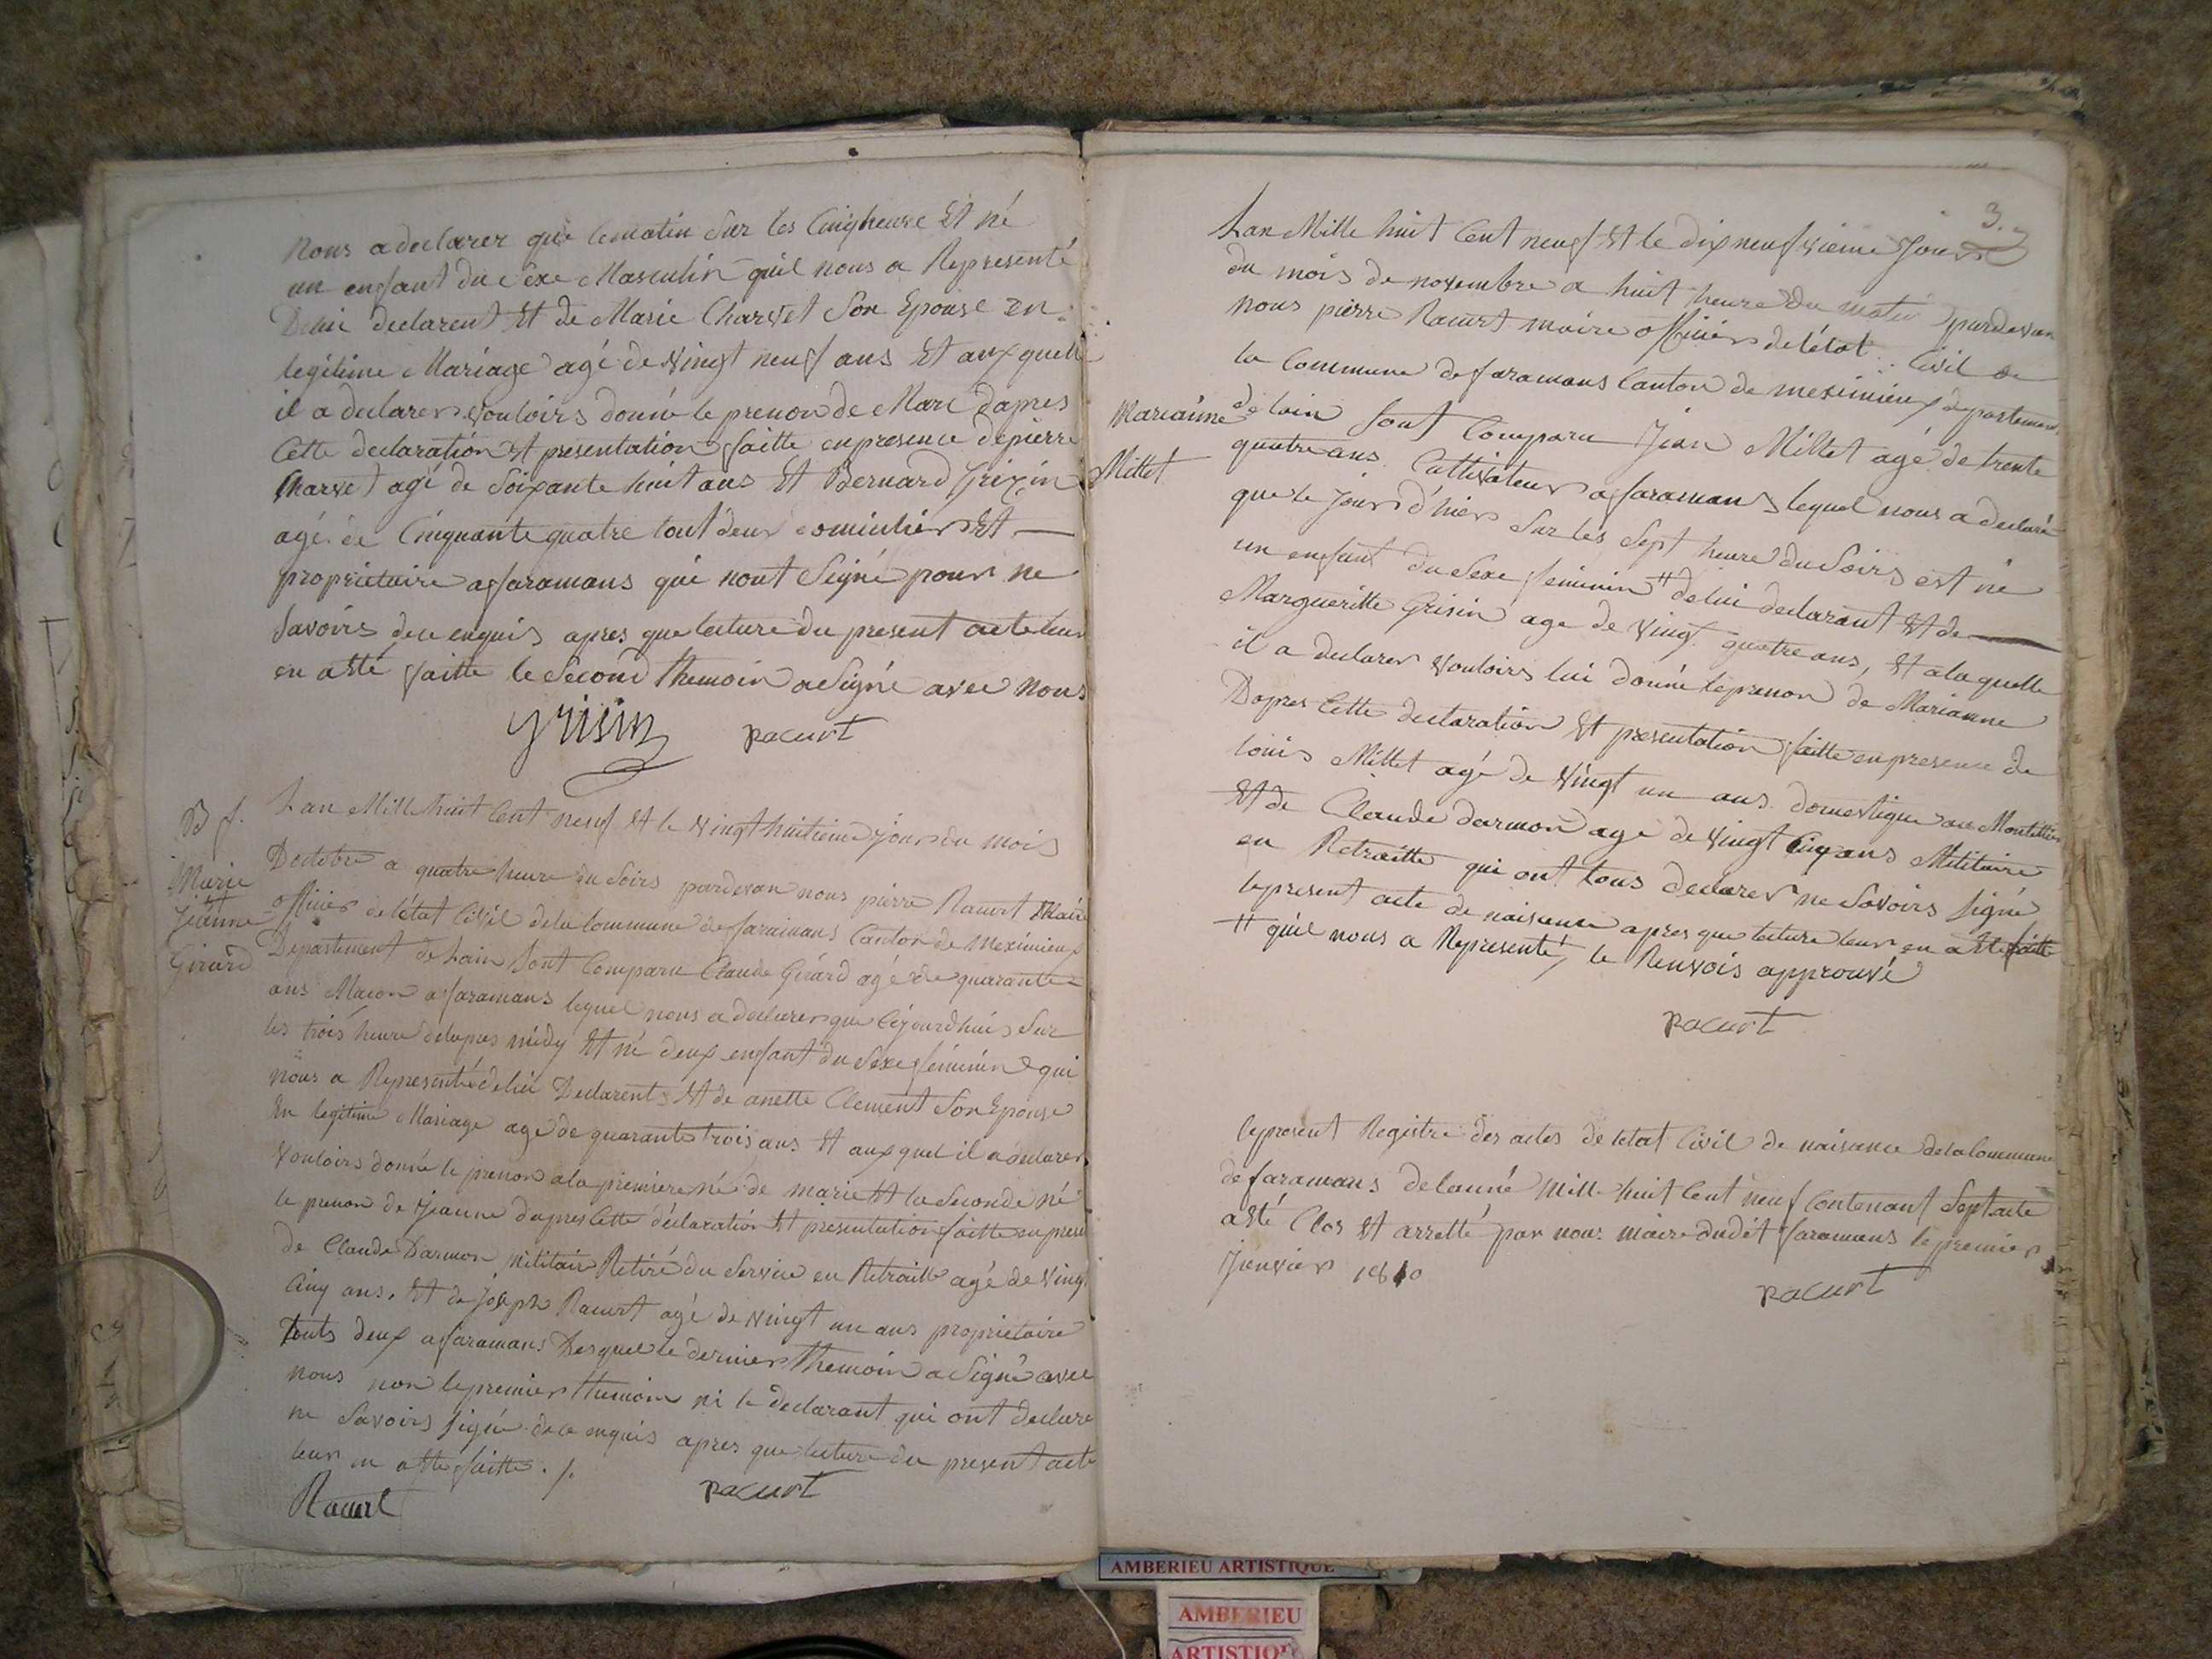 Nous a declarer que le matin Sur les Cinq heure Et né
un enfant du Sexe Masculin quil nous a Representé
De lui declarent Et de Marie Charvet Son Epouse en
legitime Mariage agé de Vingt neuf ans Et aux quelle
il a declarer Vouloirs donné le prenon de Marc Dapres
Cette declaration Et presentation faitte en presence de pierre
Charvet agé de Soixante huit ans Et Bernard Grizin
agé de Cinquante quatre tout deux Et
proprietaire a faramans qui nont Signé pour ne
Savoirs de ce enquis apres que lecture du present acte leur
en a Eté faitte le Second themoin a Signé avec Nous
Grisin pacurt
B f.
Marie
Et
Jeanne
Girard
Lan Mill huit Cent neuf Et le Vingt huitieme jour du mois
Doctobre a quatre heure du Soirs pardevan nous pierre Racurt Maire
officier de létat Civil de la Commune de faramans Canton de Meximieux
Departement de Lain Sont Comparu Claude Girard agé de quarante
ans Macon a faramans lequel nous a declarer que Cejourdhuis Sur
les trois heure delapres midy Et né deux enfant du Sexe feminin qui
nous a Representé de lui Declarent Et de anette Clement Son Epouse
En legitime Mariage agé de quarante trois ans Et aux quel il a declarer
Vouloirs donné le prenon a la premiere né de marie Et la Seconde né
le prenon de Jeanne dapres Cette declaration Et presentation faitte en presen
de Claude Darmon Militair Retiré du Service en Retraitte agé de Vingt
Cinq ans. Et de Joseph Racurt agé de Vingt un ans proprietaire
Touts deux a faramans Desquel le dernier themoin a Signé avec
nous non le premier themoin ni le declarant qui ont declare
ne Savoirs Signé de ce enquis apres que lecture du present acte
leur en a Eté faitte ./.
Racurt pacurt
3.
Lan Mille huit Cent neuf Et le dix neuf vieme Jour
du mois de novembre a huit heure du matin pardevan
nous pierre Racurt maire officier de létat Civil de
la Commune de faramans Canton de meximieux departement
Mariainne
Millet
de lain Sont Comparu Jean Millet agé de trente
quatre ans Cultivateur a faramans lequel nous a declaré
que le jour d'hier Sur les Sept heure du Soirs est né
un enfant du Sexe feminin # de lui declarant Et de
Margueritte Grisin age de Vingt quatre ans, Et a la quelle
il a declarer Vouloirs lui donné le prenon de Marianne
Dapres Cette declaration Et presentation faitte en presence de
louis Millet agé de Vingt un ans domestique au Montellier
Et de Claude darmon age de Vingt Cinq ans Militaire
en Retraitte qui ont tous declarer ne Savoirs Signé
le present acte de naisance apres que lecture leur en a Eté faitte
# quil nous a Representé, le Renvois approuvé
pacurt
le present Registre des actes de letat Civil de naisance de la Commune
de faramans de lanné Mill huit Cent neuf Contenant Sept acte
a Eté Clos Et arretté par nous maire dudit faramans le premier
Janvier 1810
pacurt
AMBERIEU ARTISTIQUE
AMBERIEU
ARTISTIQUE